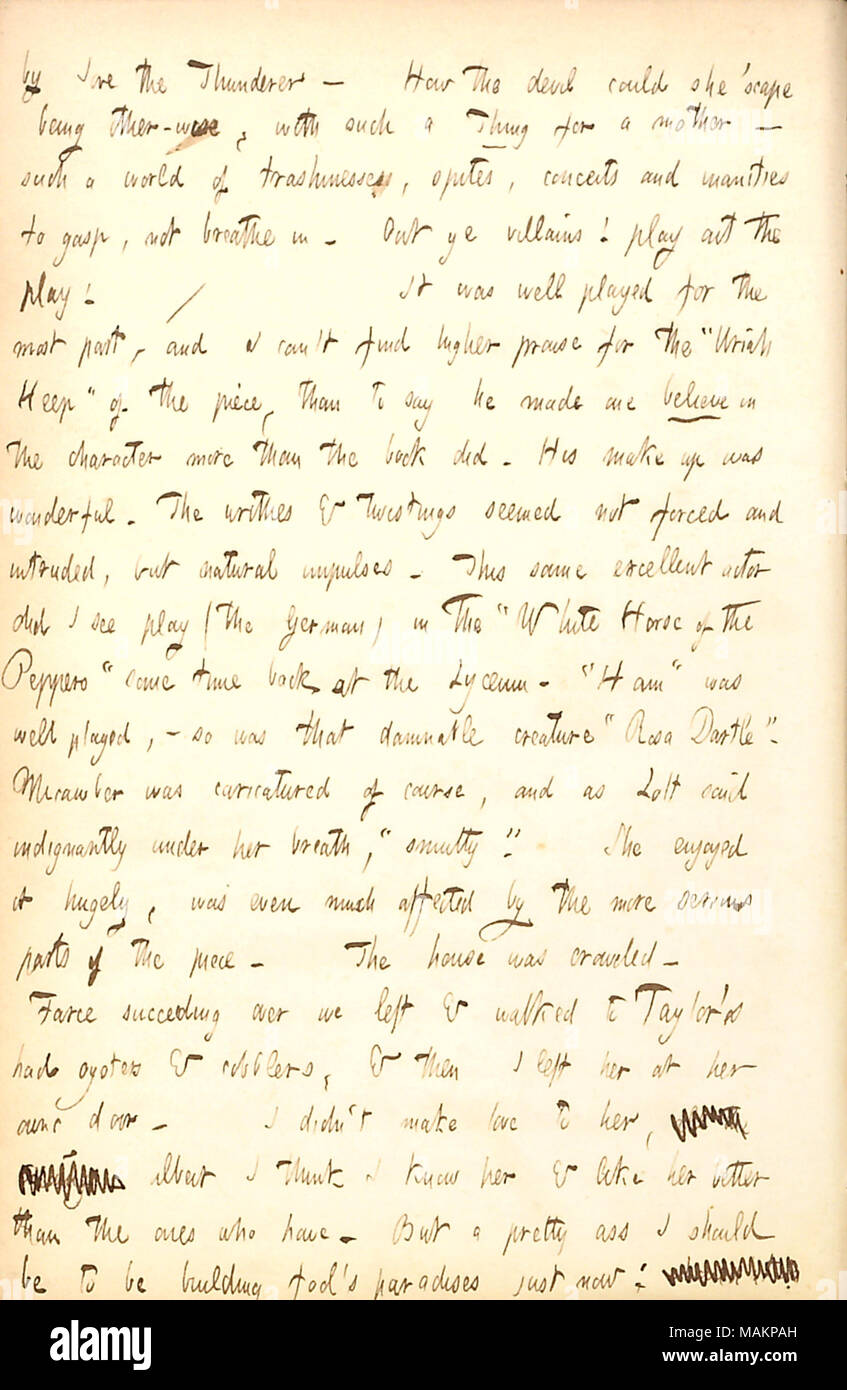 by Jove the Thunderer — How the devil could she 'scape
being other-wise, with such a Thing for a mother —
such a world of trashinesses, spites, conceits and inanities
to gasp, not breathe in — Out ye villains! play out the
play! / It was well played for the
most part, and I can't find higher praise for the "Uriah
Heep" of the piece, than to say he made one believe in
the character more than the book did. His make up was
wonderful. The writhes & twistings seemed not forced and
intruded, but natural impulses. This same excellent actor
did I see play (the German) in the "White Horse of the
Peppers" some time back at the Lyceum. "Ham" was
well played, — so was that damnable creature "Rosa Dartle".
Micawber was caricatured of course, and as Lott said
indignantly under her breath, "smutty"! She enjoyed
it hugely, was even much affected by the more serious
parts of the piece — The house was crowded —
Farce succeeding over we left & walked to Taylor's
had oysters & cobblers, & then I left her at her
own door — I didn't make love to her,
albeit I think I know her & like her better
than the ones who have. But a pretty ass I should
be to be building fool's paradises just now!
alamy
Image ID: MAKPAH
www.alamy.com